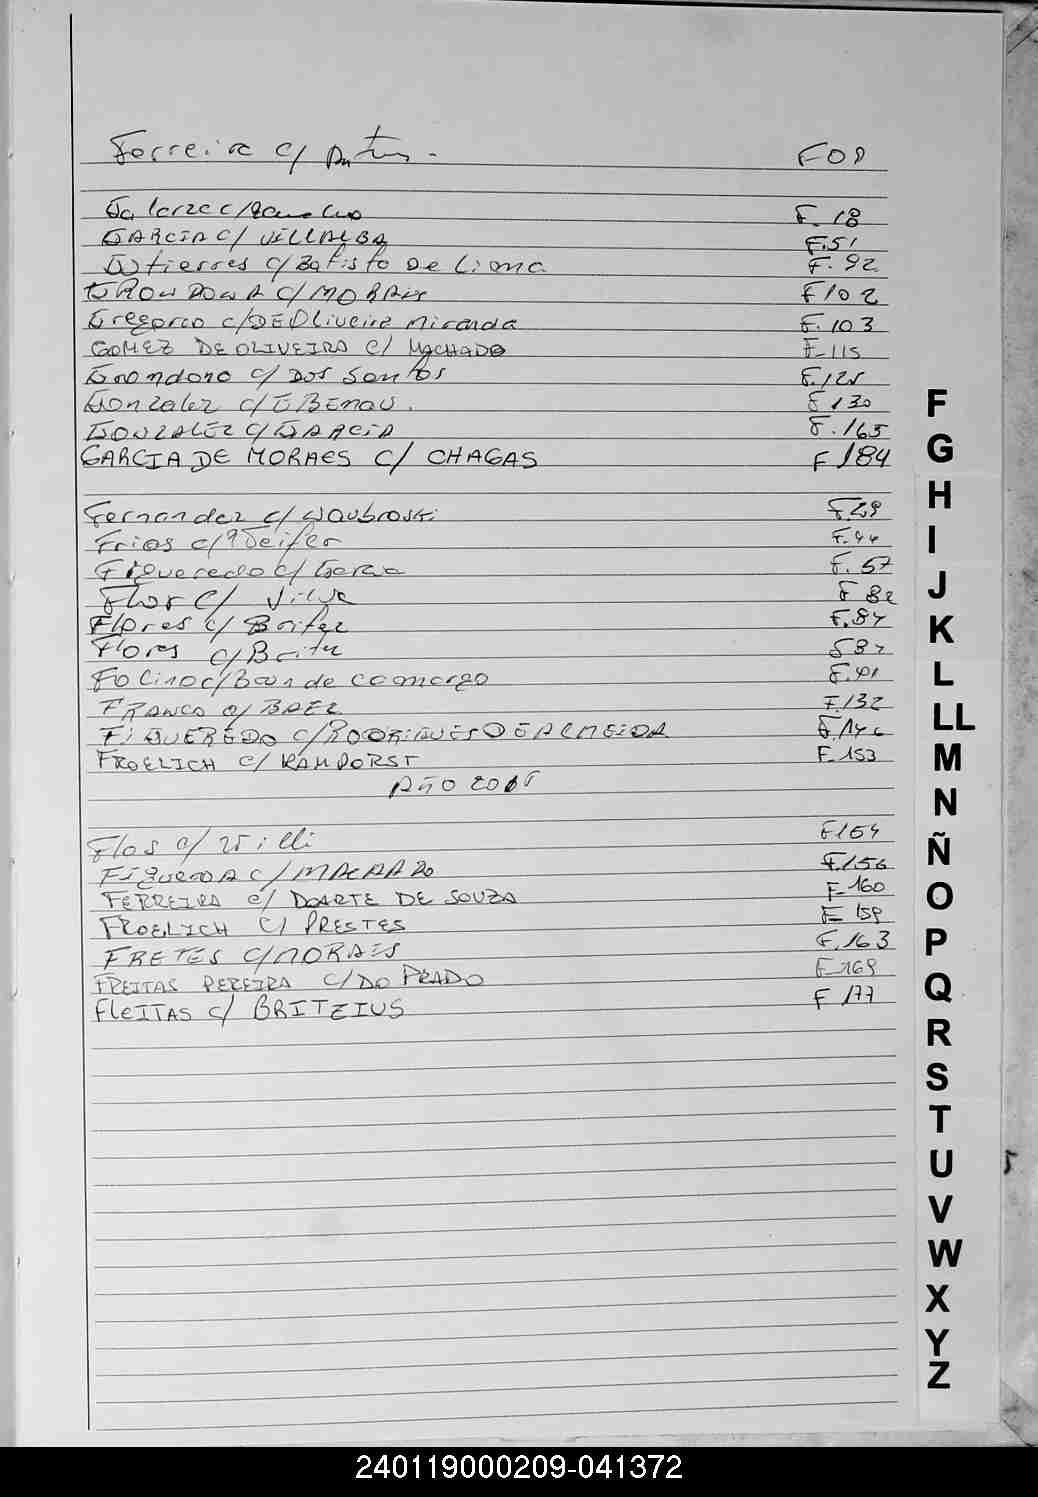 Ferreira c/ Antun - F08
Galarza c/ F. 18
GARCIA C/ VILLALBA F.51
Gutierres c/ Batista De Lima F. 92
C/ MORAIS F102
Gregorio c/ DE Oliveira Miranda F. 103
GOMEZ DE OLIVEIRA C/ MACHADO F-115
Grondono c/ DOS Santos F.125
Gonzalez c/ EBENAU. F 130
GONZALEZ C/ GARCIA F. 165
GARCIA DE MORAES C/ CHAGAS F 184
Fernandez c/ Woubroski F.29
Frias c/ F.44
Figueredo c/ F. 57
Flor C/ Silva F 82
Flores c/ Boifer F.84
Flores c/ 
c/ de camargo F.91
FRANCO c/ BAEZ F.132
FIGUEREDO C/ RODRIGUES DE ALMEIDA F.146
FROELICH C/ RAMDORST F-153
AÑO 2015
Flos c/ Willi F154
FIGUEROA C/ MACHADO F.156
FERREIRA C/ DOARTE DE SOUZA F-160
FROELICH C/ PRESTES F-159
FRETES C/ MORAIS F.163
FREITAS PEREIRA C/ DO PRADO F-169
FLEITAS C/ BRITZIUS F 177
F
G
H
I
J
K
L
LL
M
N
Ñ
O
P
Q
R
S
T
U
V
W
X
Y
Z
240119000209-041372